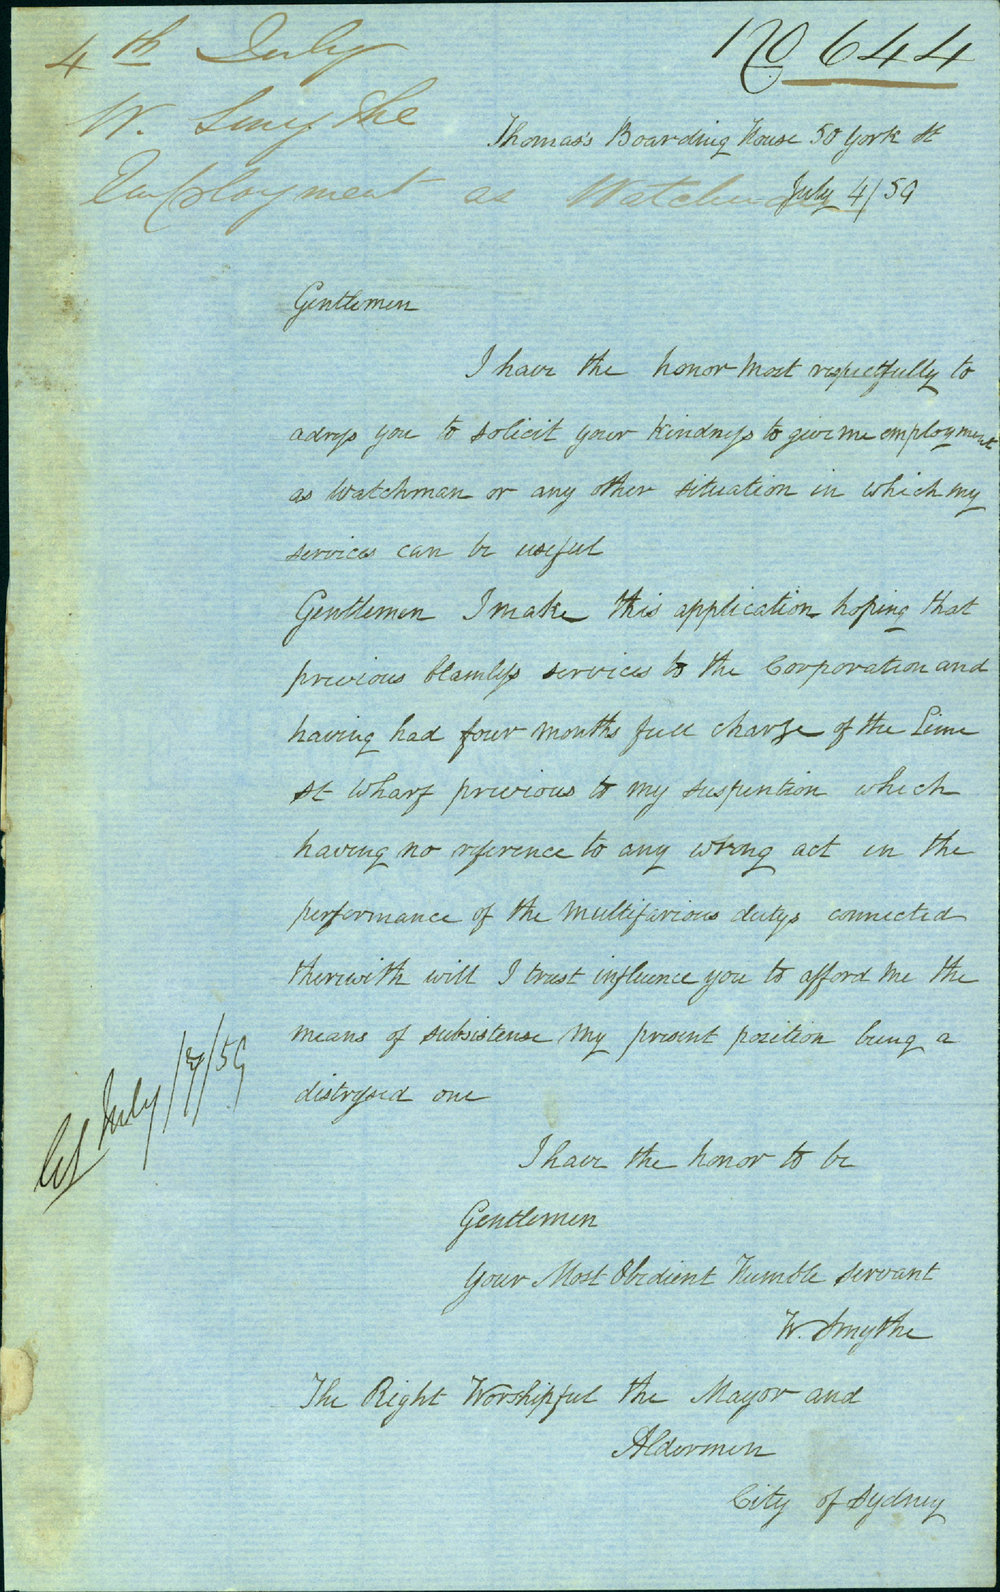 4th July
No 644
W. Smythe
Employment as Watchman
Thomas's Boarding House 50 York St
July 4/59
Gentlemen
I have the honor most respectfully to
adress you to solicit your kindness to give me employment
as Watchman or any other situation in which my
services can be useful
Gentlemen I make this application hoping that
previous blamless services to the Corporation and
having had four months full charge of the Lime
St Wharf previous to my suspention which
having no reference to any wrong act in the
performance of the multifarious dutys connected
therewith will I trust influence you to afford me the
means of subsistense my present position being a
distressed one
I have the honor to be
Gentlemen
Your Most Obedient Humble Servant
W. Smythe
The Right Worshipful the Mayor and
Aldermen
City of Sydney
July /59